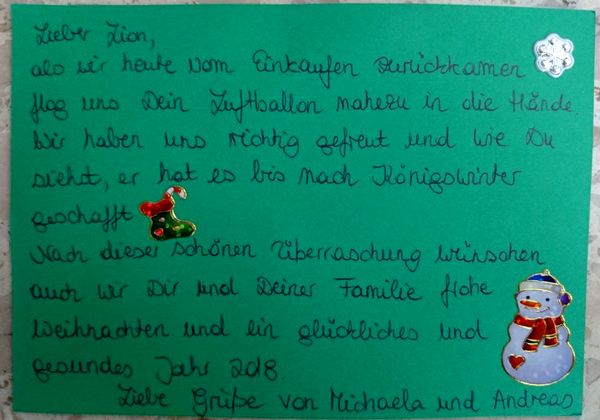 Lieber Lion,
als wir heute vom Einkaufen zurückkamen
flog uns Dein Luftballon nahezu in die Hände.
Wir haben uns richtig gefreut und wie Du
siehst, er hat es bis nach Königswinter
geschafft.
Nach dieser schönen Überraschung wünschen
auch wir Dir und Deiner Familie frohe
Weihnachten und ein glückliches und
gesundes Jahr 2018.
Liebe Grüße von Michaela und Andreas